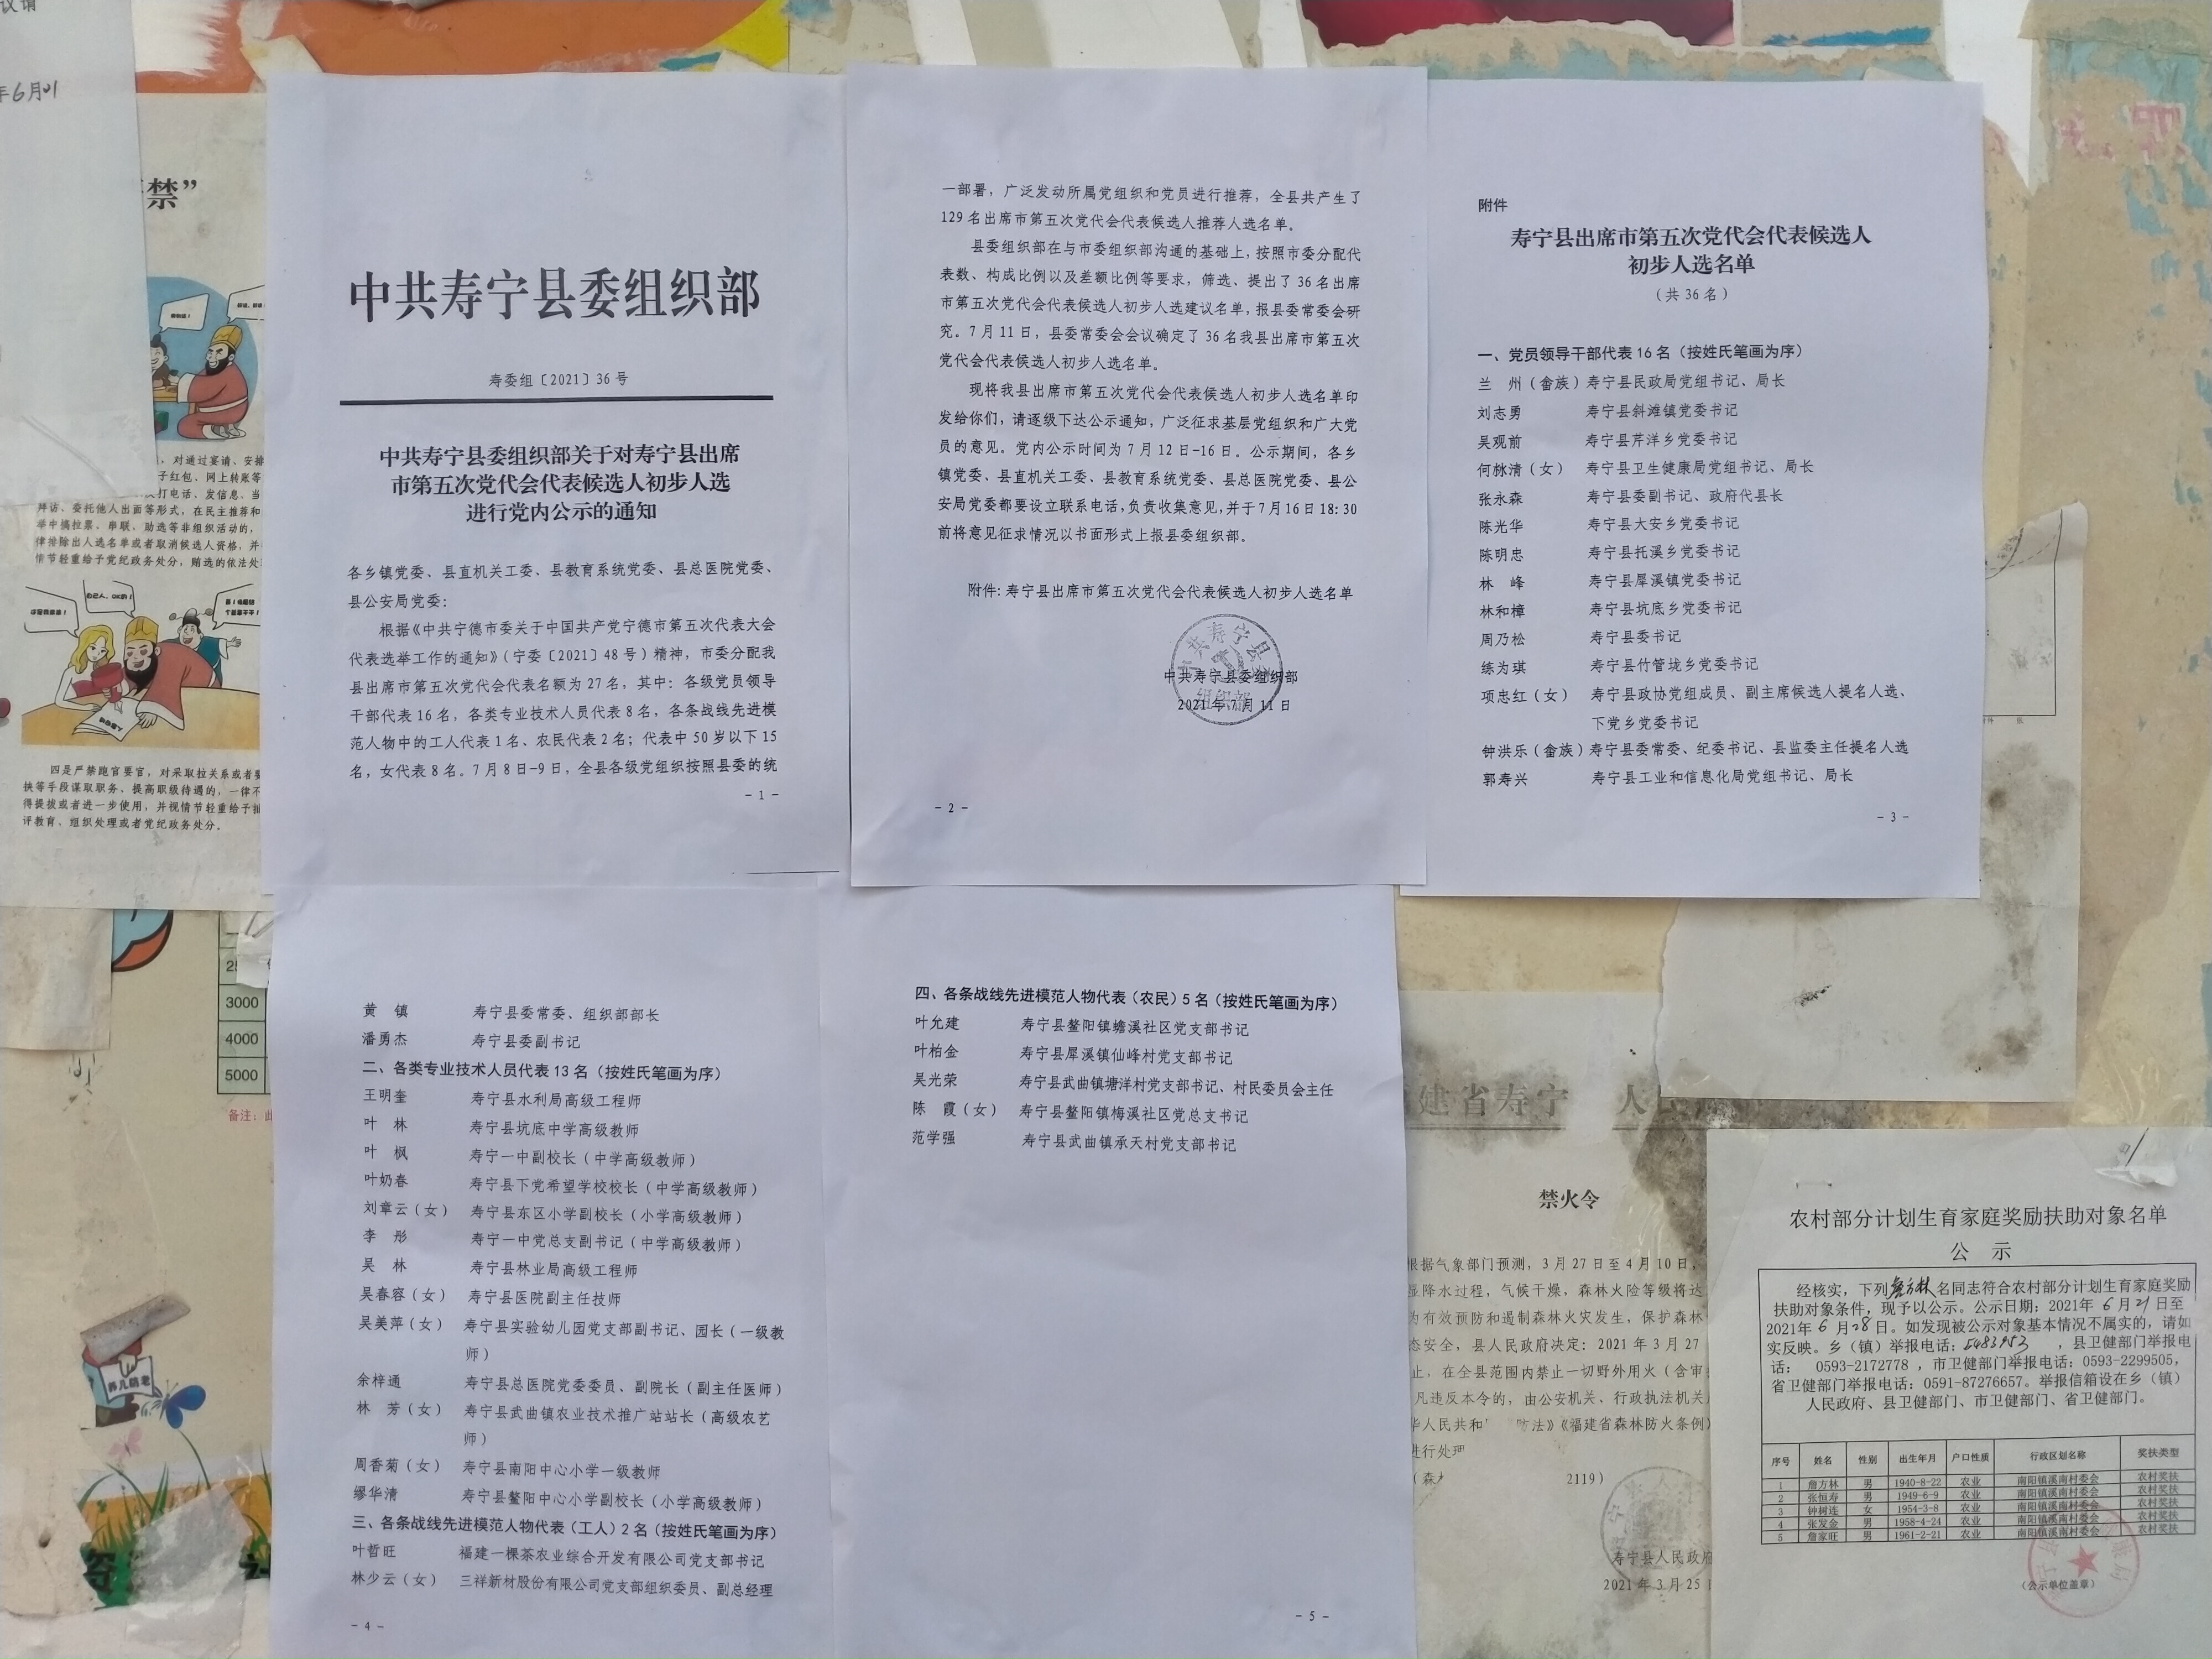 议请
年6月21
禁”
，对通过宴请、安排
子红包、网上转账等
打电话、发信息、当
拜访、委托他人出面等形式，在民主推荐和
举中搞拉票、串联、助选等非组织活动的，
律排除出人选名单或者取消候选人资格，并
情节轻重给予党纪政务处分，贿选的依法处
四是严禁跑官要官，对采取拉关系或者要
挟等手段谋取职务、提高职级待遇的，一律不
得提拔或者进一步使用，并视情节轻重给予批
评教育、组织处理或者党纪政务处分。
3000
4000
5000
备注：此
养儿防老
中共寿宁县委组织部
寿委组〔2021〕36号
中共寿宁县委组织部关于对寿宁县出席
市第五次党代会代表候选人初步人选
进行党内公示的通知
各乡镇党委、县直机关工委、县教育系统党委、县总医院党委、
县公安局党委：
根据《中共宁德市委关于中国共产党宁德市第五次代表大会
代表选举工作的通知》（宁委〔2021〕48号）精神，市委分配我
县出席市第五次党代会代表名额为27名，其中：各级党员领导
干部代表16名，各类专业技术人员代表8名，各条战线先进模
范人物中的工人代表1名、农民代表2名；代表中50岁以下15
名，女代表8名。7月8日-9日，全县各级党组织按照县委的统
- 1 -
一部署，广泛发动所属党组织和党员进行推荐，全县共产生了
129名出席市第五次党代会代表候选人推荐人选名单。
县委组织部在与市委组织部沟通的基础上，按照市委分配代
表数、构成比例以及差额比例等要求，筛选、提出了36名出席
市第五次党代会代表候选人初步人选建议名单，报县委常委会研
究。7月11日，县委常委会会议确定了36名我县出席市第五次
党代会代表候选人初步人选名单。
现将我县出席市第五次党代会代表候选人初步人选名单印
发给你们，请逐级下达公示通知，广泛征求基层党组织和广大党
员的意见。党内公示时间为7月12日-16日。公示期间，各乡
镇党委、县直机关工委、县教育系统党委、县总医院党委、县公
安局党委都要设立联系电话，负责收集意见，并于7月16日18:30
前将意见征求情况以书面形式上报县委组织部。
附件：寿宁县出席市第五次党代会代表候选人初步人选名单
中共寿宁县委组织部
2021年7月11日
- 2 -
附件
寿宁县出席市第五次党代会代表候选人
初步人选名单
（共36名）
一、党员领导干部代表16名（按姓氏笔画为序）
兰 州（畲族） 寿宁县民政局党组书记、局长
刘志勇 寿宁县斜滩镇党委书记
吴观前 寿宁县芹洋乡党委书记
何脉清（女） 寿宁县卫生健康局党组书记、局长
张永森 寿宁县委副书记、政府代县长
陈光华 寿宁县大安乡党委书记
陈明忠 寿宁县托溪乡党委书记
林 峰 寿宁县犀溪镇党委书记
林和樟 寿宁县坑底乡党委书记
周乃松 寿宁县委书记
练为琪 寿宁县竹管垅乡党委书记
项忠红（女） 寿宁县政协党组成员、副主席候选人提名人选、
下党乡党委书记
钟洪乐（畲族） 寿宁县委常委、纪委书记、县监委主任提名人选
郭寿兴 寿宁县工业和信息化局党组书记、局长
- 3 -
黄 镇 寿宁县委常委、组织部部长
潘勇杰 寿宁县委副书记
二、各类专业技术人员代表13名（按姓氏笔画为序）
王明奎 寿宁县水利局高级工程师
叶 林 寿宁县坑底中学高级教师
叶 枫 寿宁一中副校长（中学高级教师）
叶奶春 寿宁县下党希望学校校长（中学高级教师）
刘章云（女） 寿宁县东区小学副校长（小学高级教师）
李 彤 寿宁一中党总支副书记（中学高级教师）
吴 林 寿宁县林业局高级工程师
吴春容（女） 寿宁县医院副主任技师
吴美萍（女） 寿宁县实验幼儿园党支部副书记、园长（一级教
师）
余梓通 寿宁县总医院党委委员、副院长（副主任医师）
林 芳（女） 寿宁县武曲镇农业技术推广站站长（高级农艺
师）
周香菊（女） 寿宁县南阳中心小学一级教师
缪华清 寿宁县鳌阳中心小学副校长（小学高级教师）
三、各条战线先进模范人物代表（工人）2名（按姓氏笔画为序）
叶哲旺 福建一棵茶农业综合开发有限公司党支部书记
林少云（女） 三祥新材股份有限公司党支部组织委员、副总经理
- 4 -
四、各条战线先进模范人物代表（农民）5名（按姓氏笔画为序）
叶允建 寿宁县鳌阳镇蟾溪社区党支部书记
叶柏金 寿宁县犀溪镇仙峰村党支部书记
吴光荣 寿宁县武曲镇塘洋村党支部书记、村民委员会主任
陈 霞（女） 寿宁县鳌阳镇梅溪社区党总支书记
范学强 寿宁县武曲镇承天村党支部书记
- 5 -
建省寿宁 人民
禁火令
根据气象部门预测，3月27日至4月10日，
湿降水过程，气候干燥，森林火险等级将达
为有效预防和遏制森林火灾发生，保护森林
态安全，县人民政府决定：2021年3月27
止，在全县范围内禁止一切野外用火（含审
凡违反本令的，由公安机关、行政执法机关
华人民共和 防法》《福建省森林防火条例》
进行处理
（森 2119）
寿宁县人民政府
2021年3月25日
农村部分计划生育家庭奖励扶助对象名单
公 示
经核实，下列詹方林名同志符合农村部分计划生育家庭奖励
扶助对象条件，现予以公示。公示日期：2021年 6 月 21 日至
2021年 6 月 28 日。如发现被公示对象基本情况不属实的，请如
实反映。乡（镇）举报电话：5483953 ，县卫健部门举报电
话： 0593-2172778 ，市卫健部门举报电话：0593-2299505，
省卫健部门举报电话：0591-87276657。举报信箱设在乡（镇）
人民政府、县卫健部门、市卫健部门、省卫健部门。
序号 姓名 性别 出生年月 户口性质 行政区划名称 奖扶类型
1 詹方林 男 1940-8-22 农业 南阳镇溪南村委会 农村奖扶
2 张恒寿 男 1949-6-9 农业 南阳镇溪南村委会 农村奖扶
3 钟树连 女 1954-3-8 农业 南阳镇溪南村委会 农村奖扶
4 张发金 男 1958-4-24 农业 南阳镇溪南村委会 农村奖扶
5 詹家旺 男 1961-2-21 农业 南阳镇溪南村委会 农村奖扶
（公示单位盖章）